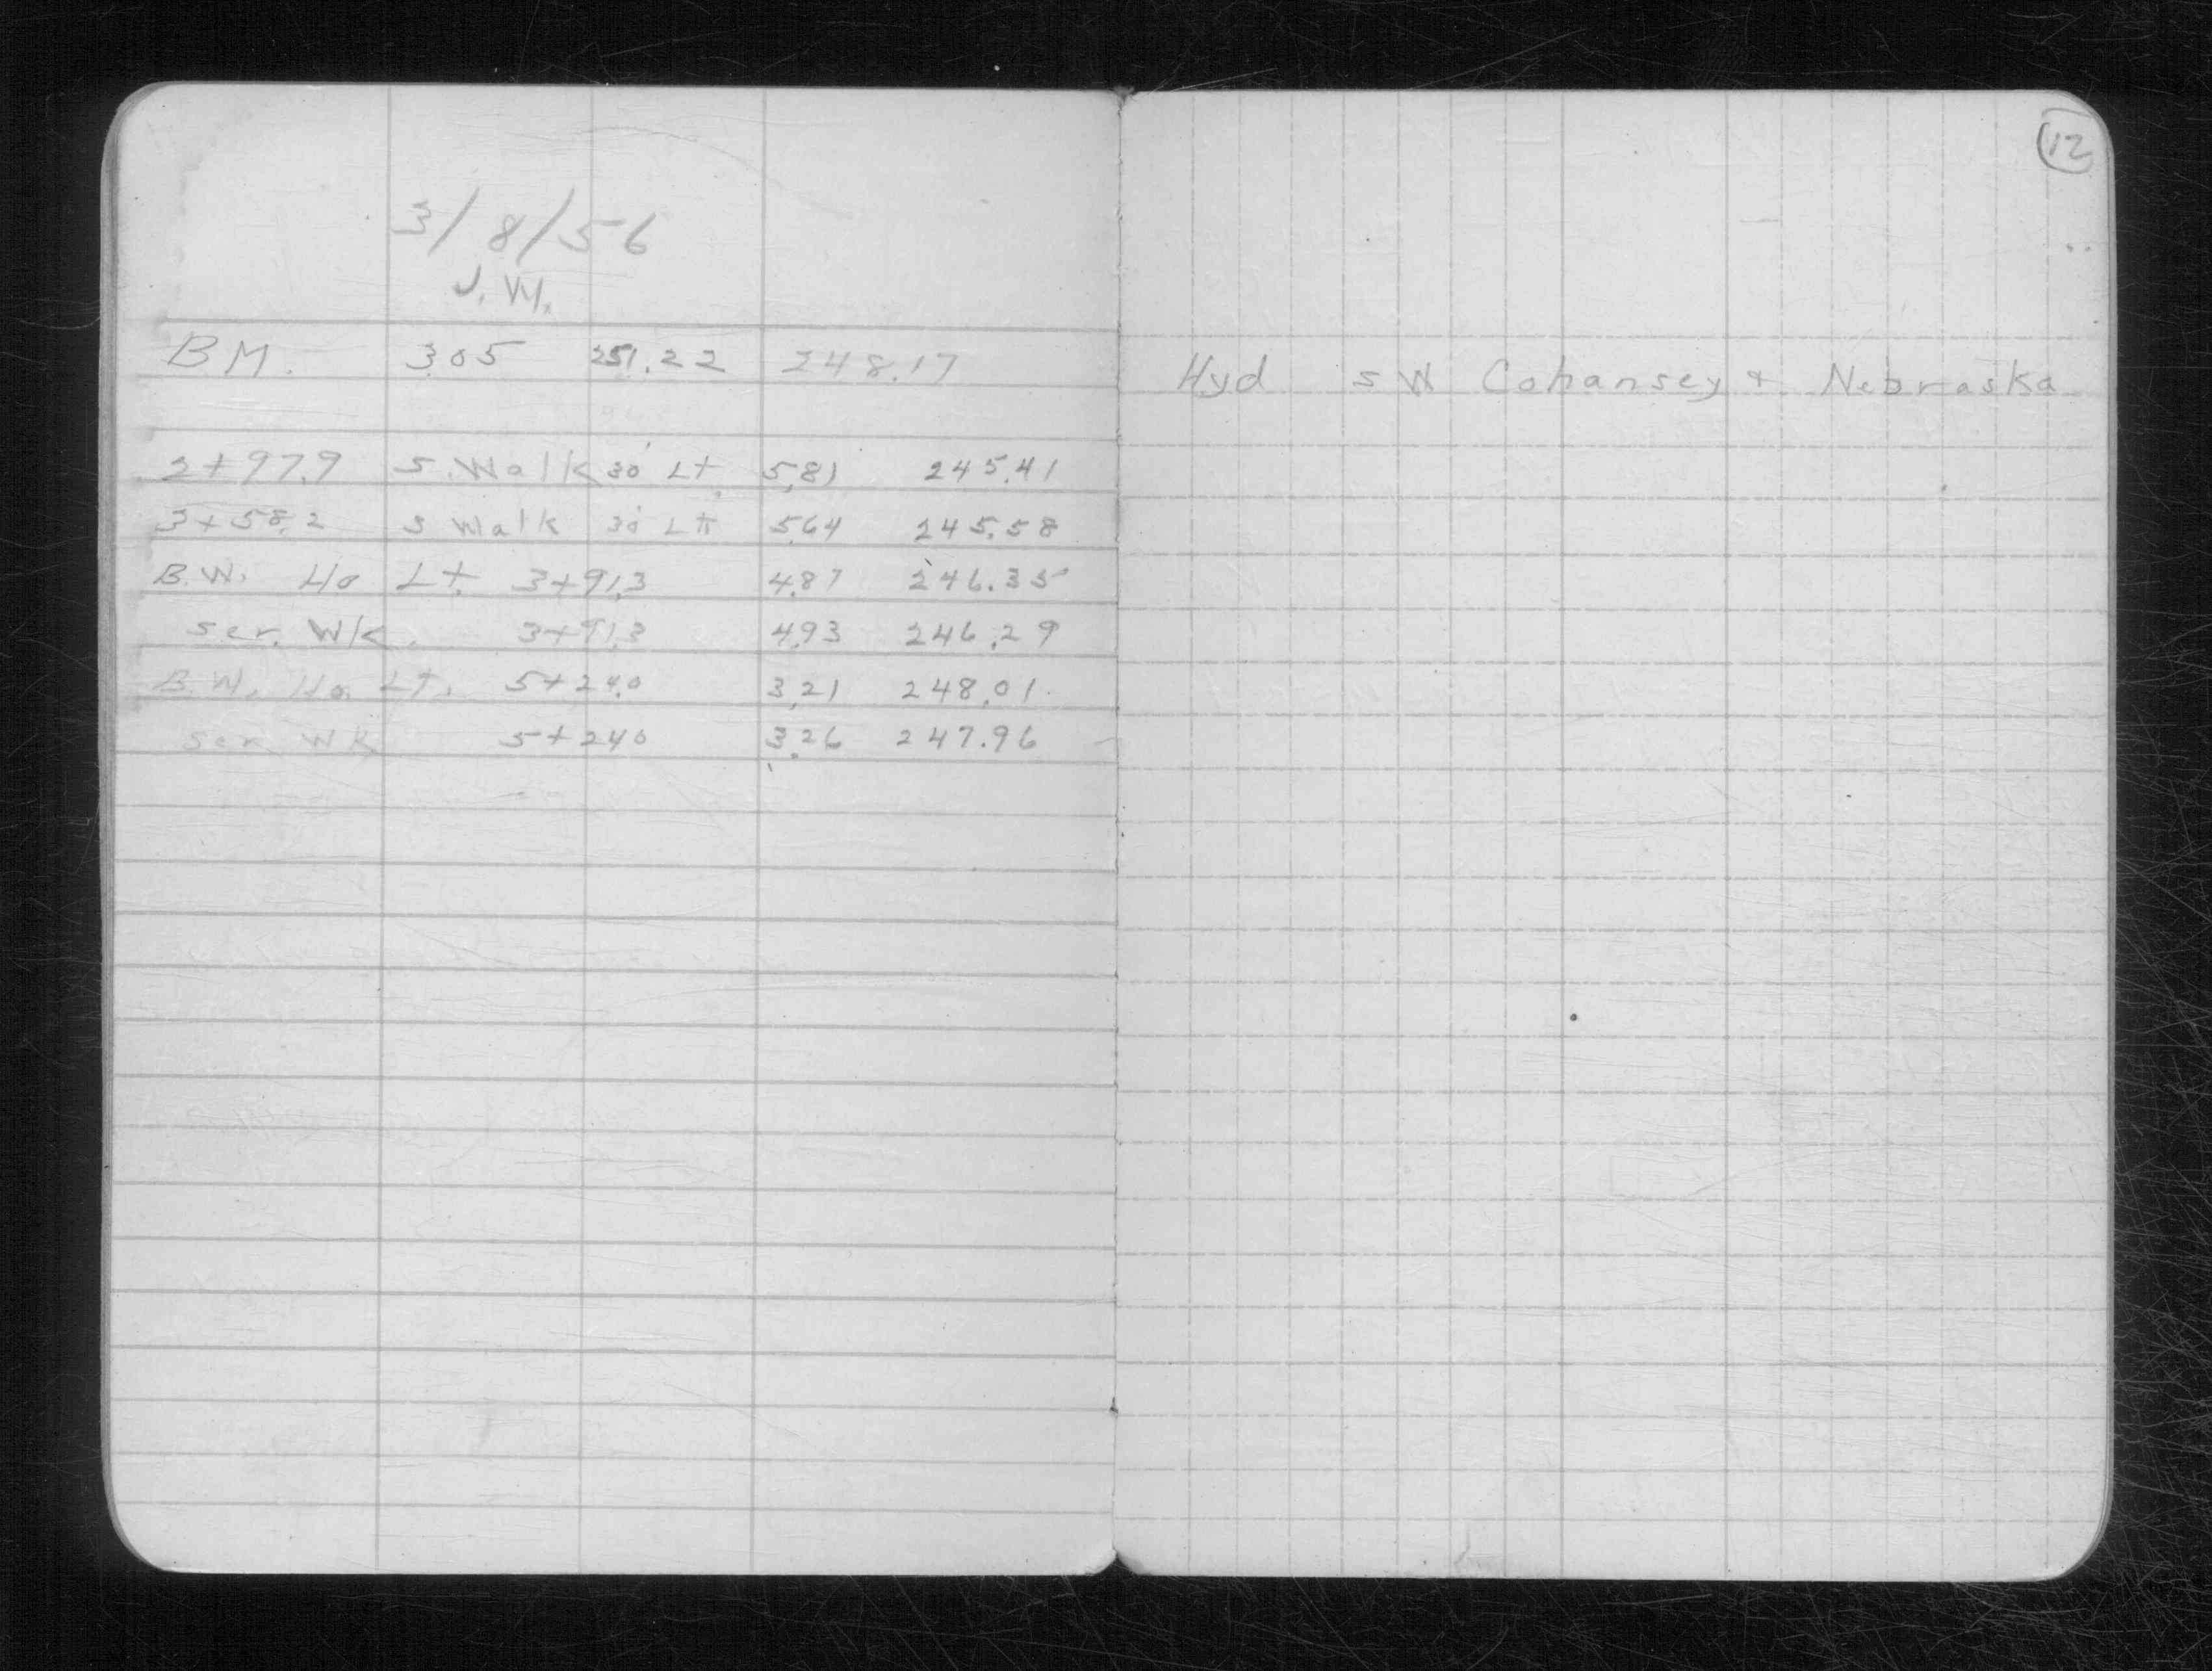 12
3/8/56
J.W.
BM. 3.05 251.22 248.17
Hyd SW Cohansey & Nebraska
2+97.9 S. Walk 30' Lt. 5.81 245.41
3+58.2 S Walk 30' Lt 5.64 245.58
B.W. Ho Lt. 3+91.3 4.87 246.35
ser. WK. 3+91.3 4.93 246.29
B.W. Ho. LT. 5+24.0 3.21 248.01
ser. WK 5+240 3.26 247.96